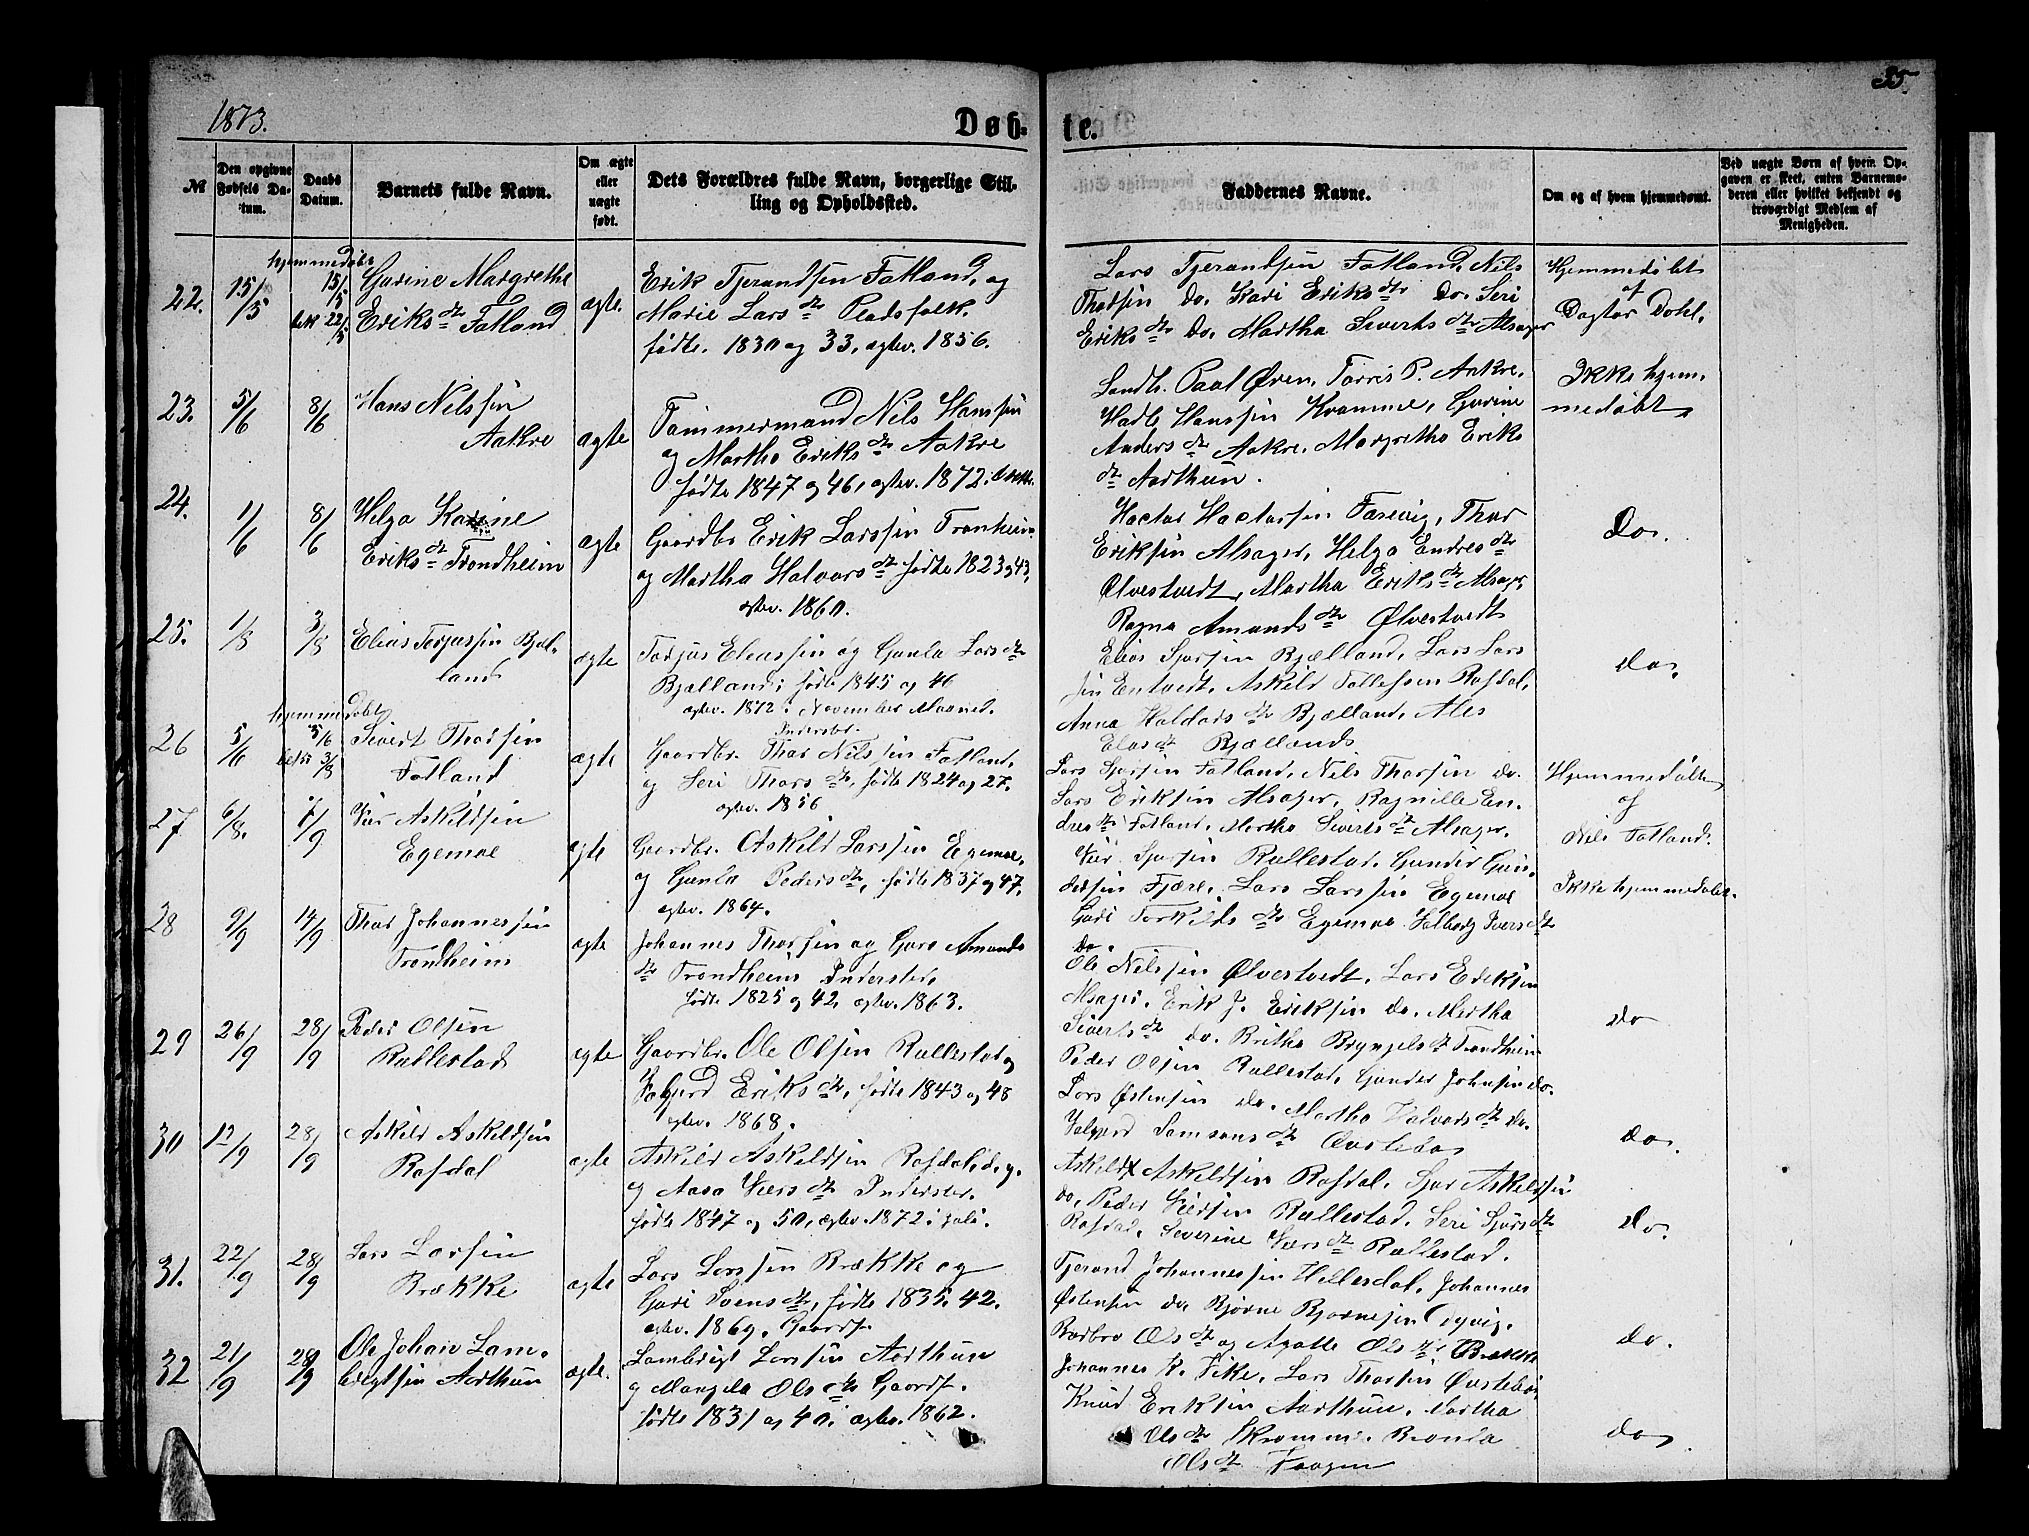 35.
1873.
Døb-
te.
№
Den opgivne Fødsels Datum.
Daabs Datum.
Barnets fulde Navn.
Om ægte eller uægte født.
Dets Forældres fulde Navn, borgerlige Stilling og Opholdssted.
Faddernes Navne.
Om og af hvem hjemmedøbt.
Ved uægte Børn af hvem Opgaven er skeet, enten Barnemoderen eller hvilket bekjendt og troværdigt Medlem af Menigheden.
22. 15/5 hjemmedøbt 15/5 bek 22/5
Gurine Margrethe
Eriksdtr Fatland
ægte.
Erik Tjerandsen Fatland, og
Marie Larsdtr Pladsfolk.
fødte. 1830 og 33, ægtev. 1856.
Lars Tjerandsen Fatland, Nils
Thorsen do. Kari Eriksdtr do. Seri
Eriksdtr do. Martha Sivertsdtr Alsager
Hjemmedøbt
af
Dagtor Dohl.
23. 5/6 8/6
Hans Nilssen
Aakre
ægte
Tømmermand Nils Hanssen
og Martha Eriksdtr Aakre
fødte 1847 og 46, ægtev. 1872.
Landh. Paal Øren, Torris P. Aakre.
Hadle Hanssen Kramme, Gurine
Andersdtr Aakre. Margretha Eriks
dtr Aarthun.
Ikke hjem,
medøbt
24. 1/6 8/6
Helga Karine
Eriksdtr Trondheim
ægte
Gaardbr Erik Larssen Tronheim
og Martha Halvorsdtr fødte 1823 og 43,
ægtev. 1860.
Hactor Hactorsen Farevig, Thor
Eriksen Alsager, Helga Endresdtr
Ølvestvedt, Martha Eriksdtr Alsager
Ragna Amundsdtr Ølvestvedt
Do.
25. 1/8 3/8
Elias Torjussen Bjel-
land
ægte
Torjus Eleassen og Gunla Larsdtr
Bjælland; født 1845 og 46
ægtev. 1872 i November Maaned.
Indersbr.
Elias Sjursen Bjælland, Lars Lars
sen Entvedt. Askild Tollefsen Rafdal,
Anna Haldorsdtr Bjælland, Ales
Elasdtr Bjællands
do.
26 5/6 hjemmedøbt 5/6 3/8
Sivert Thorsen
Fatland
ægte
Gaardbr. Thor Nilssen Fatland,
og Seri Thorsdtr, fødte 1824 og 27.
ægtev. 1856
Lars Sjursen Fatland, Nils Thorsen do.
Lars Eriksen Alsager, Ragnille En-
dresdtr Fatland. Martha Sivertsdtr Alsager.
Hjemmedøbt
af
Nils Fatland.
27 6/8. 7/9
Vier Askildsen
Egemoe
ægte
Gaardbr. Askild Larssen Egemoe,
og Gunla Pedersdtr, fødte 1837 og 47.
ægtev. 1864.
Vier Sjursen Rullestad, Gunder Gun-
dersen Fjære. Lars Larssen Egemoe
Guri Torkildsdtr Egemoe Valborg Iversdtr
do.
Ikke hjemmedøbt.
28 9/9 14/9
Thor Johannessen
Trondheim
ægte
Johannes Thorsen og Guro Amunds
dtr Trondheim Inderster.
fødte 1825 og 42, ægtev. 1863.
Ole Nilssen Ølvestvedt, Lars Eriksen
Alsager. Erik J. Eriksen do. Martha
Sivertsdtr do. Britha Brynjelsdtr Trondheim
do
29 26/9 28/9
Peder Olsen
Rullestad
ægte
Gaardbr. Ole Olsen Rullestad og
Valgjerd Eriksdtr, fødte 1843 og 48
ægtev. 1868.
Peder Olsen Rullestad, Gunder Johnsen do.
Lars Østensen do. Martha Halvorsdtr do.
Valgjerd Samsonsdtr Øvstebø
do.
30 12/9 28/9
Askild Askildsen
Rafdal
ægte
Askild Askeldsen Rafdal, d. y.
og Aasa Viersdtr Inderster.
fødte 1847 og 50, ægtev. 1872 i Juli.
Askild Askeldsen Rafdal, Sjur Askeldsen
do, Peder Viersen Rullestad, Seri Sjursdtr
Rafdal, Severine Viersdtr Rullestad.
do.
31. 22/9 28/9
Lars Larsen
Brække
ægte
Lars Larssen Brække og
Guri Svensdtr, fødte 1835. 42.
ægtev. 1869. Gaardf.
Tjerand Johannessen Hellesdal, Johannes
Østensen do. Bjørne Bjørnesen Dyvig.
Barbro Olsdtr og Agatte Olsdtr Brække
do.
32 21/9 28/9
Ole Johan Lam-
brigtsen Aarthun
ægte.
Lambrigt Larssen Aarthun
og Mangela Olsdtr Gaardf.
fødte 1831 og 40, ægtev. 1862.
Johannes K. Fike. Lars Thorsen Øvstebø
Knud Eriksen Aarthun. Martha
Olsdtr Kramme. Bronla
Olsdtr Haagen
do